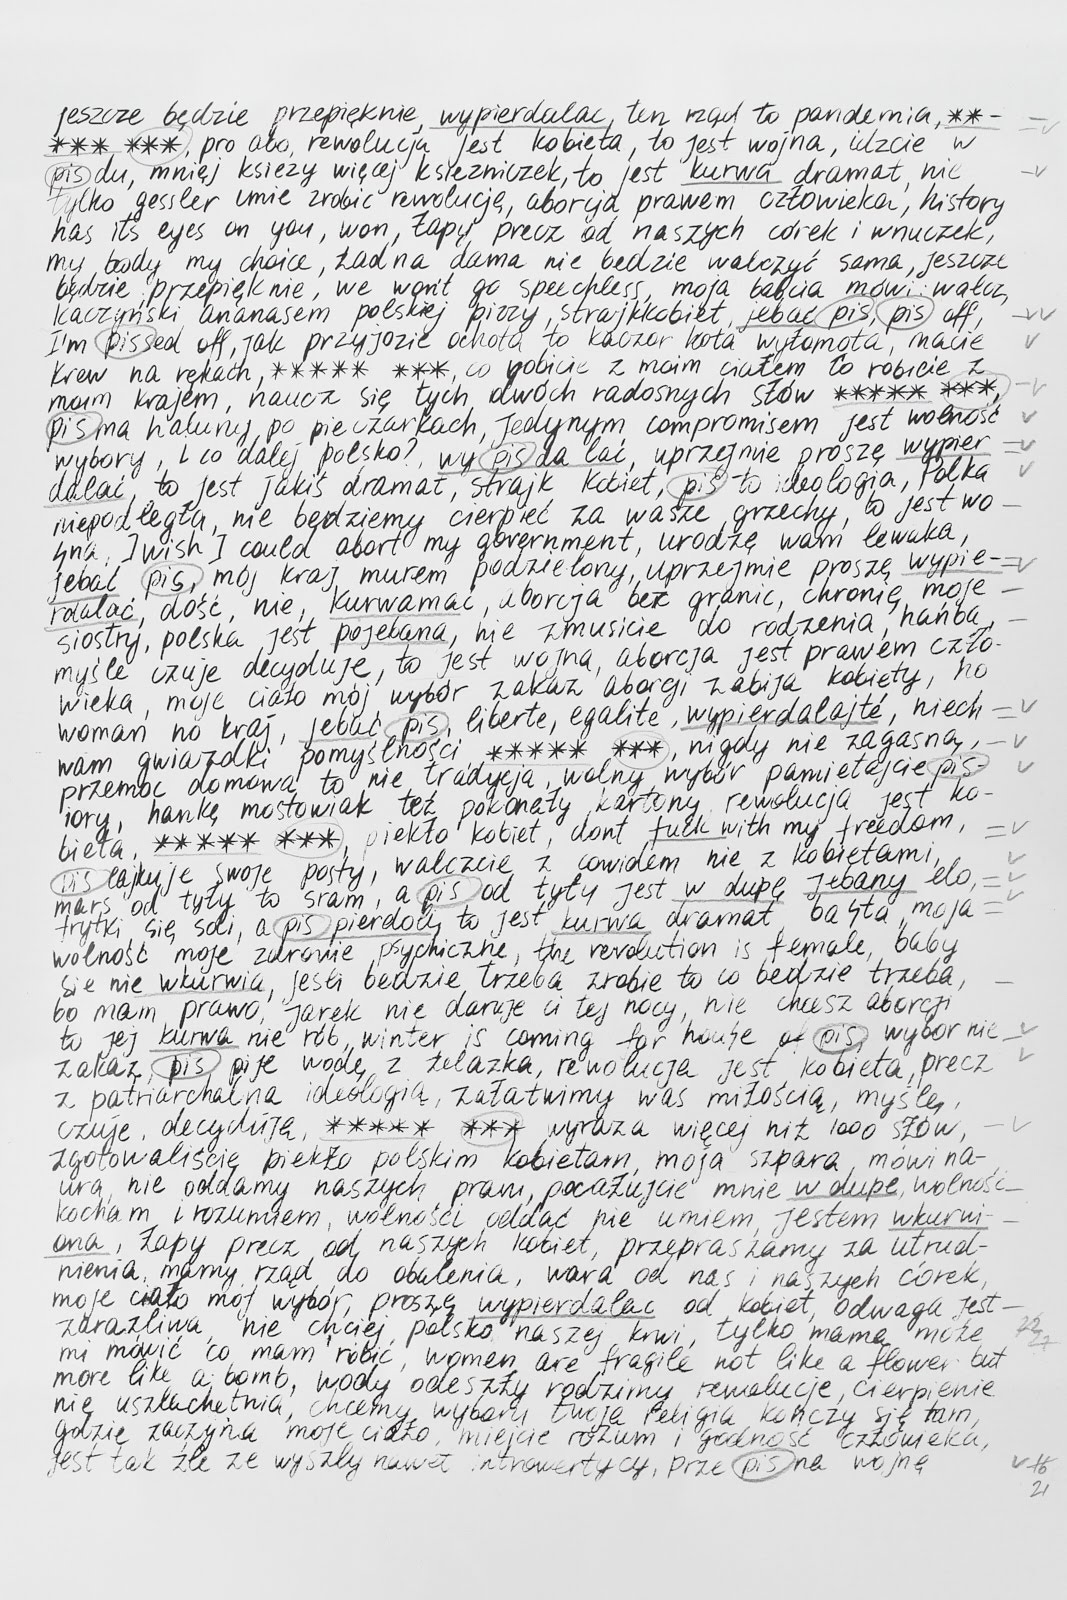 jeszcze będzie przepięknie, wypierdalac, ten rząd to pandemia, **-
*** ***, pro abo, rewolucja jest kobieta, to jest wojna, idzcie w
pis du, mniej księży więcej ksiezniczek, to jest kurwa dramat, nie
tylko gessler umie zrobic rewolucję, aborcja prawem człowieka, history
has its eyes on you, won, łapy precz od naszych córek i wnuczek,
my body my choice, żadna dama nie bedzie walczyć sama, jeszcze
będzie przepięknie, we won't go speechless, moja babcia mówi: walcz,
kaczyński ananasem polskiej pizzy, strajkkobiet, jebać pis, pis off,
I'm pissed off, jak przyjdzie ochota to kaczor kota wyłomota, macie
krew na rękach, ***** ***, co robicie z moim ciałem to robicie z
moim krajem, naucz się tych dwóch radosnych słów ***** ***,
pis ma haluny po pieczarkach, jedynym compromisem jest wolność
wyboru, i co dalej polsko?, wy pis da lać, uprzejmie proszę wypier
dalać, to jest jakiś dramat, strajk kobiet, pis to ideologia, Polka
niepodległa, nie będziemy cierpieć za wasze grzechy, to jest wo
jna, I wish I could abort my government, urodzę wam lewaka,
jebać pis, mój kraj murem podzielony, uprzejmie proszę wypie-
rdalać, dość, nie, kurwamać, aborcja bez granic, chronię moje
siostry, polska jest pojebana, nie zmusicie do rodzenia, hańba,
myśle czuje decyduje, to jest wojna, aborcja jest prawem czło-
wieka, moje ciało mój wybór zakaz aborcji zabija kobiety, no
woman no kraj, jebać pis, liberte, egalite, wypierdalajté, niech
wam gwiazdki pomyślności ***** ***, nigdy nie zagasną,
przemoc domowa to nie tradycja, wolny wybór pamiętajcie pis-
iory, hankę mostowiak też pokonały kartony, rewolucja jest ko-
bieta, ***** ***, piekło kobiet, dont fuck with my freedom,
pis lajkuje swoje posty, walczcie z cowidem nie z kobietami,
mars od tyły to sram, a pis od tyły jest w dupę jebany elo,
frytki się soli, a pis pierdoli, to jest kurwa dramat basta, moja
wolność moje zdrowie psychiczne, the revolution is female, baby
sie nie wkurwia, jeśli bedzie trzeba zrobie to co bedzie trzeba,
bo mam prawo, jarek nie daruje ci tej nocy, nie chcesz aborcji
to jej kurwa nie rób, winter is coming for house of pis, wybor nie
zakaz, pis pije wodę z żelazka, rewolucja jest kobieta, precz
z patriarchalna ideologią, załatwimy was miłością, myślę,
czuję, decydują, ***** *** wyraza więcej niż 1000 słów,
zgotowaliście piekło polskim kobietam, moja szpara, mówi na-
ura, nie oddamy naszych praw, pocałujcie mnie w dupe, wolność
kocham i rozumiem, wolności oddać nie umiem, jestem wkurwi-
ona, łapy precz od naszych kobiet, przepraszamy za utrud-
nienia, mamy rząd do obalenia, wara od nas i naszych córek,
moje ciało mój wybór, proszę wypierdalac od kobiet, odwaga jest
zaraźliwa, nie chciej polsko naszej krwi, tylko mama może
mi mówić co mam robić, women are fragile not like a flower but
more like a bomb, wody odeszły rodzimy rewolucje, cierpienie
nie uszlachetnia, chcemy wyboru, twoja religia kończy się tam,
gdzie zaczyna moje ciało, miejcie rozum i godność człowieka,
jest tak źle ze wyszły nawet introwertycy, prze pis na wojnę